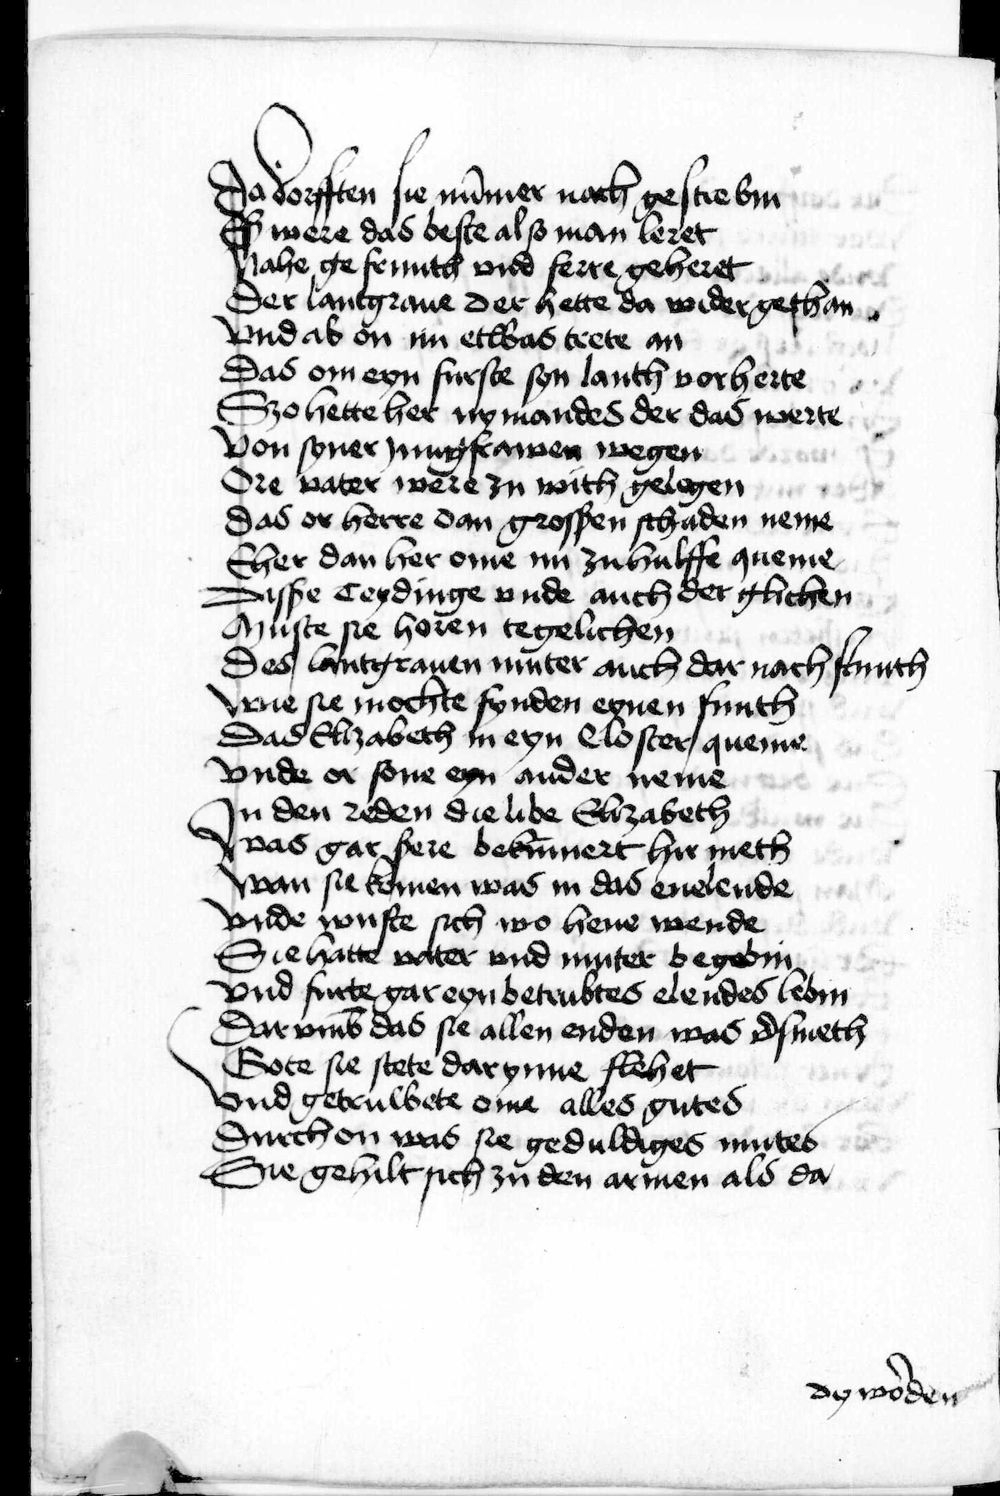 Da dorfften sie nům̄er nach gestrebin
Eß were das beste also man leret
Nahe gefrunth vnd ferre geheret
Der lantgraue der hette da wider gethan
Vnd ab on nu etwas trete an
Das om eyn furste syn lanth vorherte
Szo hette her nymandes der das werte
Von syner jungfrawen wegen
Ore vater were zu with gelegen
Das or herre dan grosßen schaden neme
Eher dan her ome nu zu hulffe queme
Disße teydinge vnde auch der glichen
Muste sie horen tegelichen
Des lantgrauen muter auch dar nach stunth
Wue sie mochte fynden eynen funth
Das Elizabeth in eyn Closter queme
Vnde or sone eyn ander neme
In den reden die libe Elizabeth
Was gar sere bekūmert hir meth
Wan sie komen was in das enelende
Vnde wuste sich wo hene wende
Sie hatte vater vnd muter begebin
Vnd furte gar eyn betrubtes elendes lebin
Dar vmb das sie allen enden was v̄smeth
Gote sie stete dar ynne flehet
Vnd getrulbete ome alles gutes
Durch on was sie geduldiges mutes
Sie gehilt sich zu den armen als da
dy worden